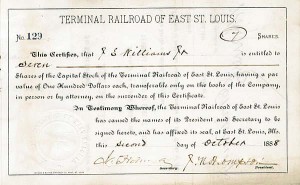 TERMINAL RAILROAD OF EAST ST. LOUIS.
No. 129 7 SHARES.
This Certifies, that J S Williams Jr is entitled to
Seven
Shares of the Capital Stock of the Terminal Railroad of East St. Louis, having a par
value of One Hundred Dollars each, transferable only on the books of the Company,
in person or by attorney, on the surrender of this Certificate.
In Testimony Whereof, the Terminal Railroad of East St. Louis
has caused the names of its President and Secretary to be
signed hereto, and has affixed its seal, at East St. Louis, Ills.
this second day of October 1888
Secretary. President.